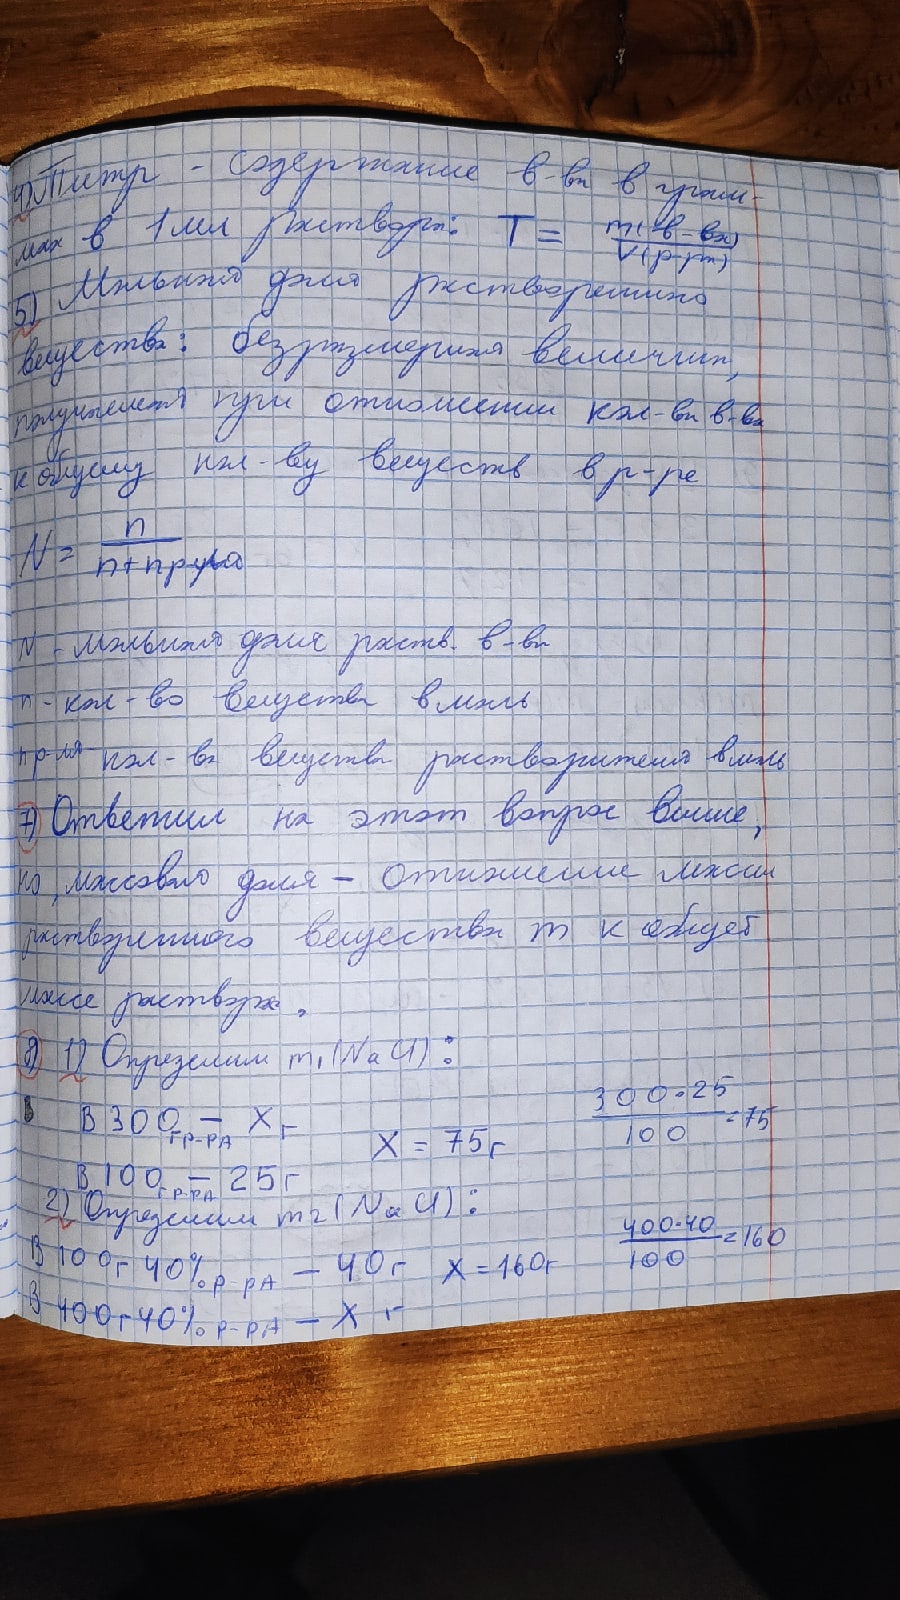 4) Титр - содержание в-ва в грам-
мах в 1 мл раствора: T = m(в-ва) / V(р-ра)
5) Мольная доля растворенного
вещества: безразмерная величина,
получаемая при отношении кол-ва в-ва
к общему кол-ву веществ в р-ре
N = n / n+nр-ля
N - мольная доля раств. в-ва
n - кол-во вещества в моль
nр-ля - кол-во вещества растворителя в моль
7) Ответил на этот вопрос выше,
но, массовая доля - отношение массы
растворенного вещества m к общей
массе раствора.
8) 1) Определим m₁(NaCl):
В 300 г р-рА — X г X = 75 г 300·25 / 100 = 75
В 100 г р-рА — 25 г
2) Определим m₂(NaCl):
В 100 г 40% р-рА — 40 г X = 160 г 400·40 / 100 = 160
В 400 г 40% р-рА — X г